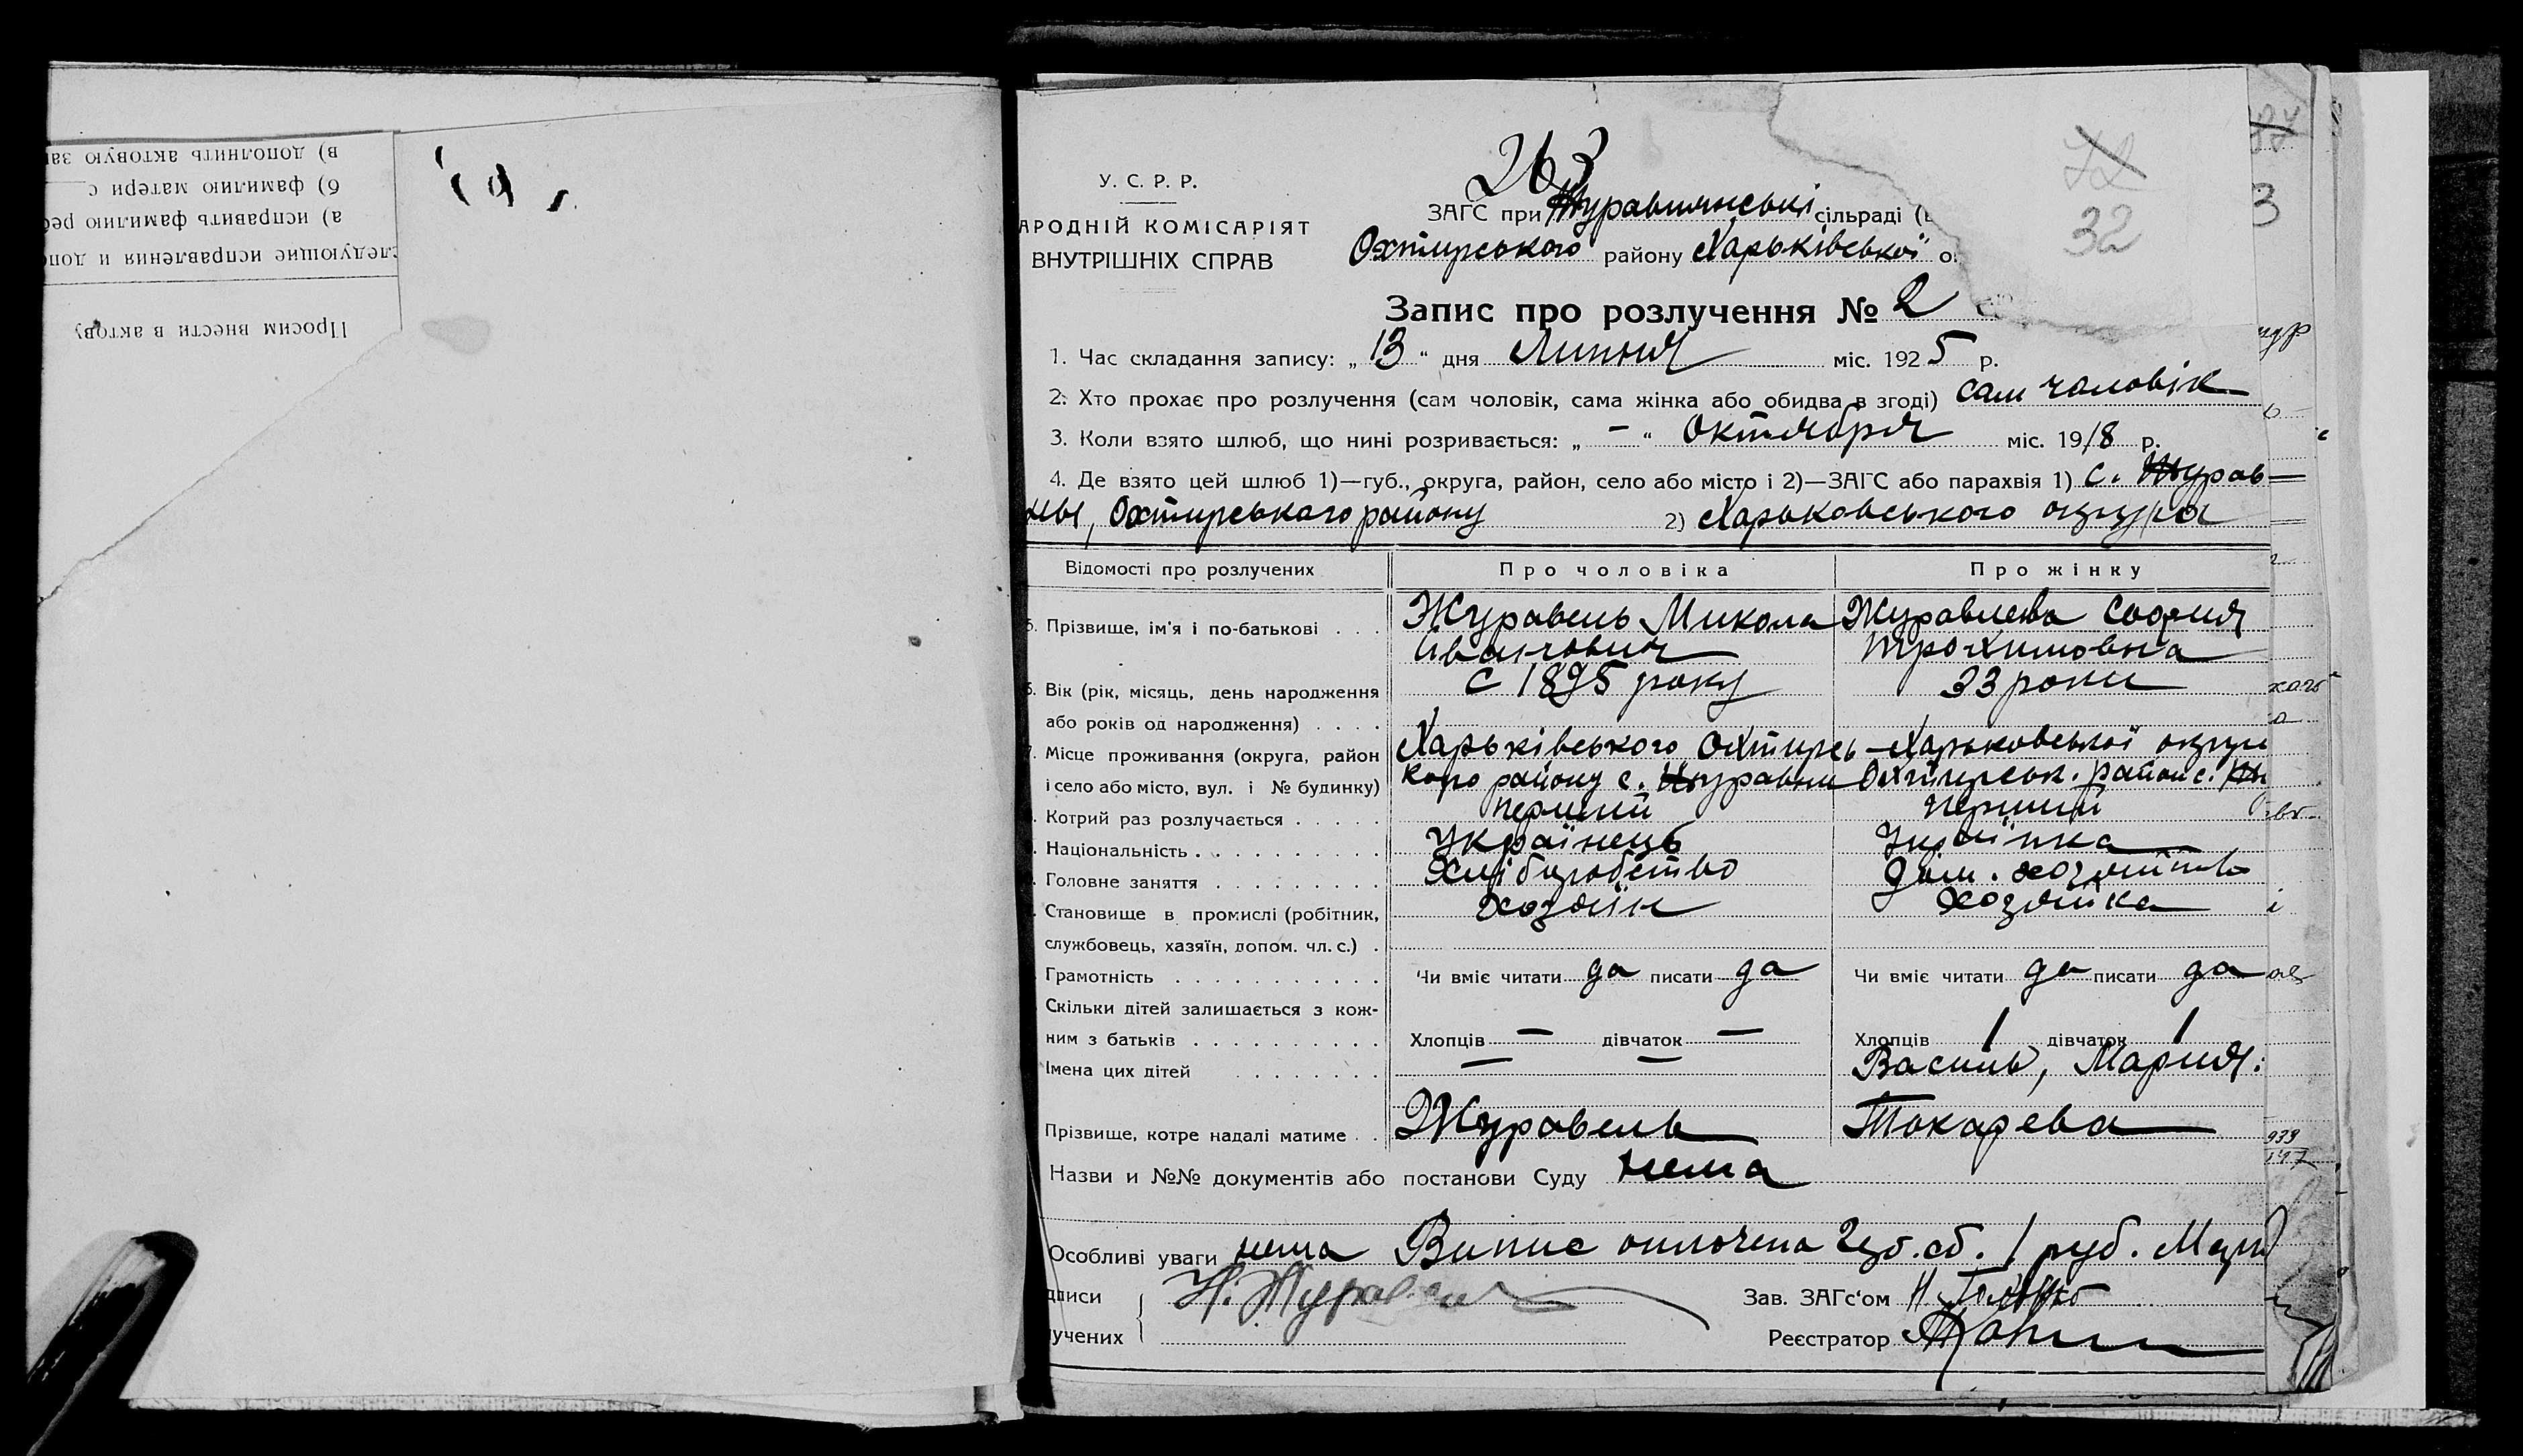 в) дополнить актовую зап
б) фамилию матери с
а) исправить фамилию реб
следующие исправления и допо
Просим внести в актову
263
72
32
У. С. Р. Р.
АРОДНІЙ КОМІСАРІЯТ
ВНУТРІШНІХ СПРАВ
ЗАГС при Журавлянські сільраді (в
Охтирського району Харьківської о
Запис про розлучення № 2
1. Час складання запису: „ 13 “ дня Липня міс. 1925 р.
2. Хто прохає про розлучення (сам чоловік, сама жінка або обидва в згоді) сам чоловік
3. Коли взято шлюб, що нині розривається: „ — “ Октября міс. 1918 р.
4. Де взято цей шлюб 1)—губ., округа, район, село або місто і 2)—ЗАГС або парахвія 1) с. Журав-
Охтирського району 2) Харьковського округа
Відомості про розлучених Про чоловіка Про жінку
Прізвище, ім'я і по-батькові Журавель Микола Журавлева София
Іванович Трохимовна
Вік (рік, місяць, день народження с 1895 року 33 роки
або років од народження)
Місце проживання (округа, район Харьківського Охтирсь- Харьковської округи
і село або місто, вул. і № будинку) кого району с. Журавни Охтирськ. район с.
Котрий раз розлучається перший перший
Національність Українець Украінка
Головне заняття Хліборобство Дом. хозяйство
Становище в промислі (робітник, хозяін хозяйка
службовець, хазяїн, допом. чл. с.)
Грамотність Чи вміє читати да писати да Чи вміє читати да писати да
Скільки дітей залишається з кож-
ним з батьків Хлопців — дівчаток — Хлопців 1 дівчаток 1
Імена цих дітей — — Василь, Мария:
Прізвище, котре надалі матиме Журавель Токарева
Назви и №№ документів або постанови Суду нема
Особливі уваги нема Випис оплочена руб.
дписи Н. Журавель Зав. ЗАГс'ом
лучених Реєстратор